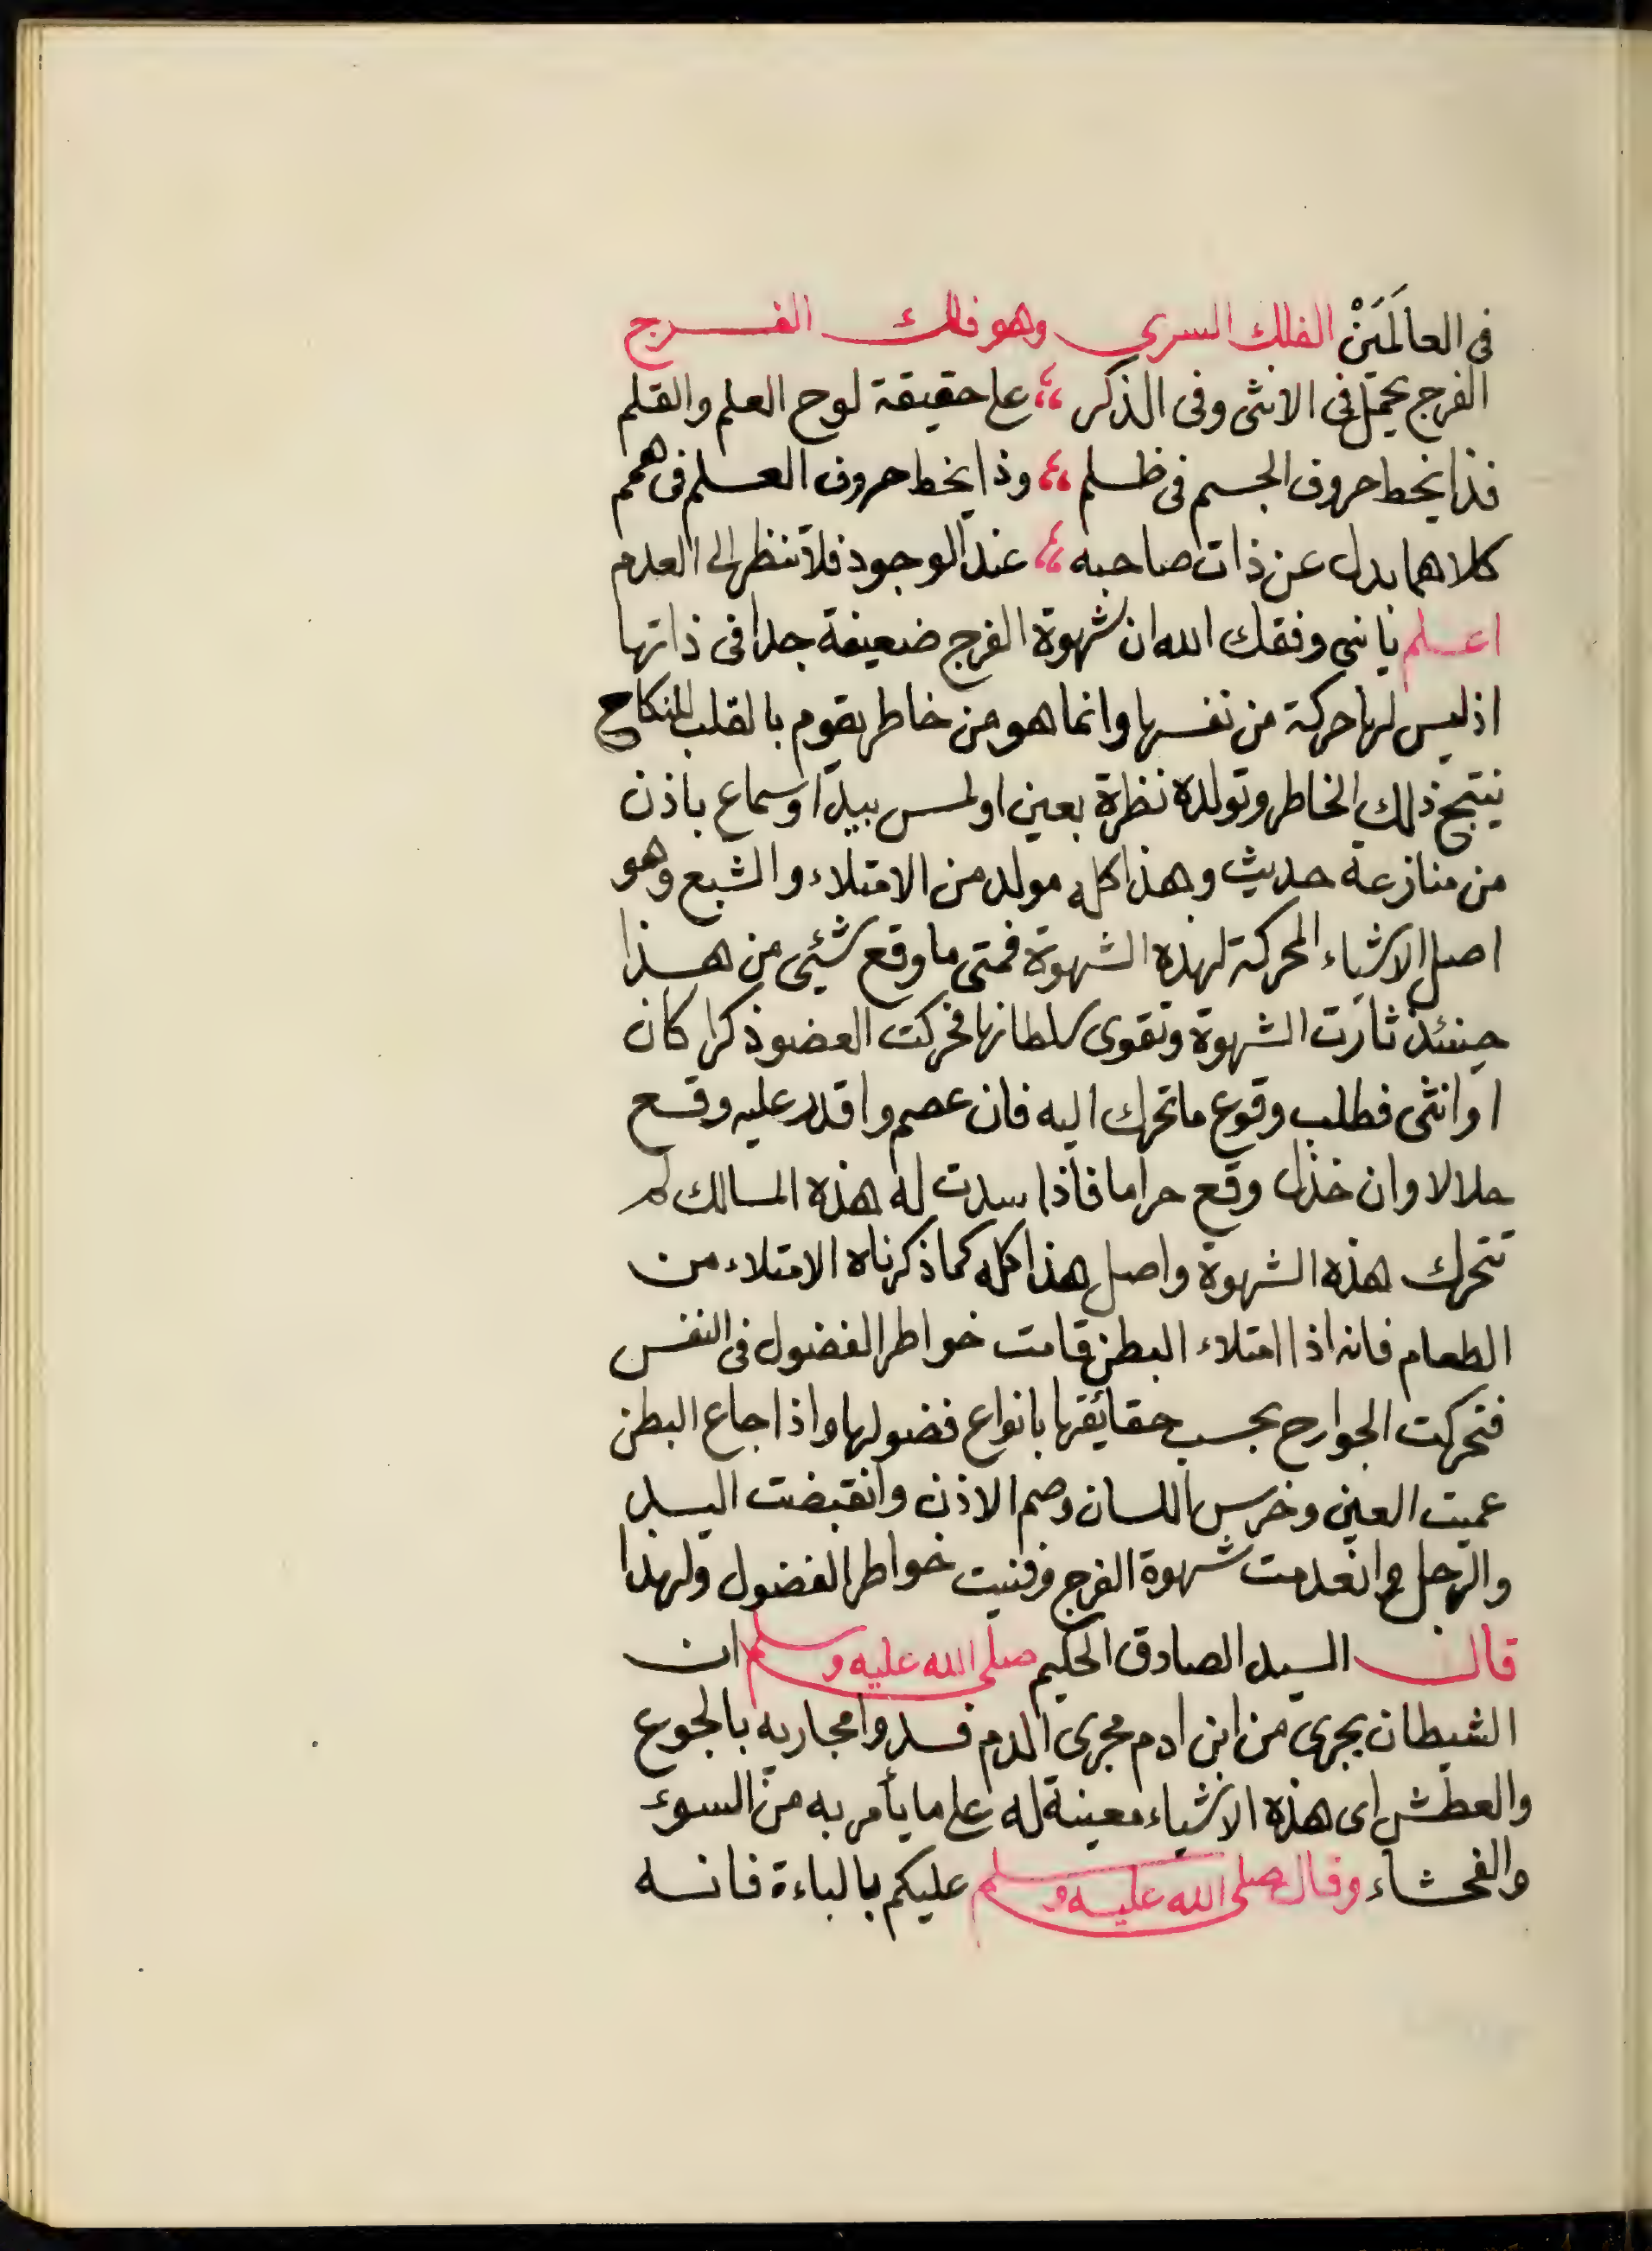 في العالَمَيْن الفلك السرى وهو فلك الفرج
الفرج يحمل فى الانثى وفى الذكر ،، على حقيقة لوح العلم والقلم
فذا يخط حروف الجسم فى ظلم ،، وذا يخط حروف العلم فى همم
كلاهما بدل عن ذات صاحبه ،، عند الوجود فلا تنظر الى العدم
اعلم يا بنى وفقك الله ان شهوة الفرج ضعيفة جدا فى ذاتها
اذ ليس لها حركة من نفسها وانما هو من خاطر يقوم بالقلب للنكاح
ينتج ذلك الخاطر وتولده نظرة بعين او لمس بيد او سماع باذن
من منازعة حديث وهذا كله مولد من الامتلاء والشبع وهو
اصل الاشياء المحركة لهذه الشهوة فمتى ما وقع شئى من هذا
حينئذ ثارت الشهوة وتقوى سلطانها فحركت العضو ذكرا كان
او انثى فطلب وقوع ما تحرك اليه فان عصم واقدر عليه وقع
حلالا وان خذل وقع حراما فاذا سدت له هذه المسالك لم
تتحرك هذه الشهوة واصل هذا كله كما ذكرناه الامتلاء من
الطعام فانه اذا امتلاء البطن قامت خواطر الفضول فى النفس
فتحركت الجوارح بحسب حقائقها بانواع فضولها واذا جاع البطن
عميت العين وخرس اللسان وصم الاذن وانقبضت اليد
والرجل وانعدمت شهوة الفرج وفنيت خواطر الفضول ولهذا
قال السيد الصادق الحكيم صلى الله عليه وسلم ان
الشيطان يجرى من ابن ادم مجرى الدم فسدوا مجاريه بالجوع
والعطش اى هذه الاشياء معينة له على ما يأمر به من السوء
والفحشاء وقال صلى الله عليه وسلم عليكم بالباءة فانه